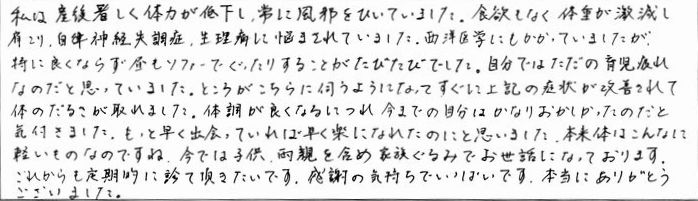 私は産後著しく体力が低下し、常に風邪をひいていました。食欲もなく体重が激減し
肩こり、自律神経失調症、生理痛に悩まされていました。西洋医学にもかかっていましたが、
特に良くならず昼もソファーでぐったりすることがたびたびでした。自分ではただの育児疲れ
なのだと思っていました。ところがこちらに伺うようになってすぐに上記の症状が改善されて
体のだるさが取れました。体調が良くなるにつれ今までの自分はかなりおかしかったのだと
気付きました。もっと早く出会っていれば早く楽になれたのにと思いました。本来体はこんなに
軽いものなのですね。今では子供、両親を含め家族ぐるみでお世話になっております。
これからも定期的に診て頂きたいです。感謝の気持ちでいっぱいです。本当にありがとう
ございました。